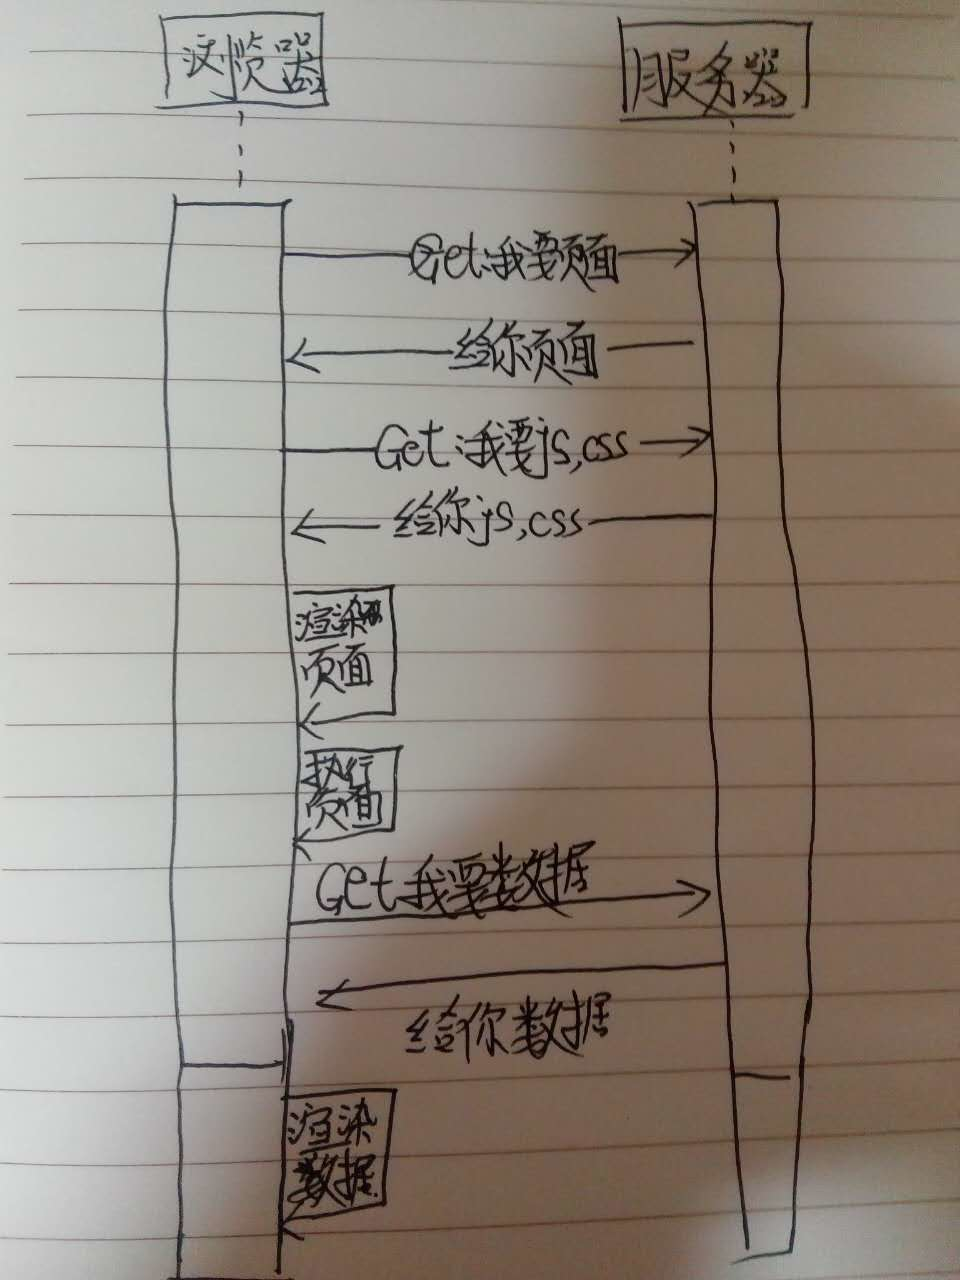 浏览器
服务器
Get:我要页面
给你页面
Get:我要js,css
给你js,css
渲染
页面
执行
页面
Get我要数据
给你数据
渲染
数据